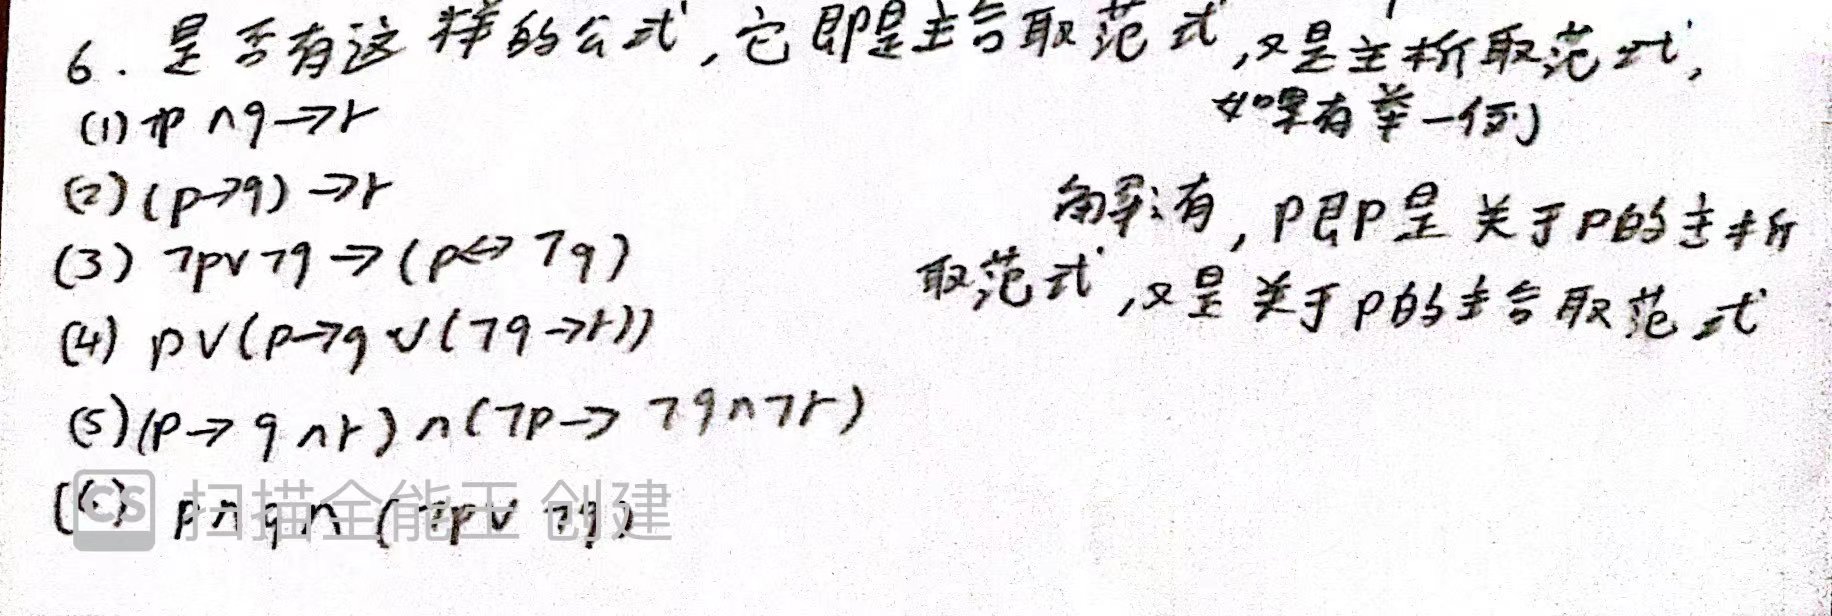 6. 是否有这样的公式,它即是主合取范式,又是主析取范式,
如果有举一例
(1) p∧q→r
(2) (p→q)→r
(3) ¬p∨¬q→(p↔¬q)
(4) p∨(p→q∨(¬q→r))
(5) (p→q∧r)∧(¬p→¬q∧¬r)
(6) p∧q∧(¬p∨¬q)
解:有,p即是关于p的主析
取范式,又是关于p的主合取范式
CS 扫描全能王 创建